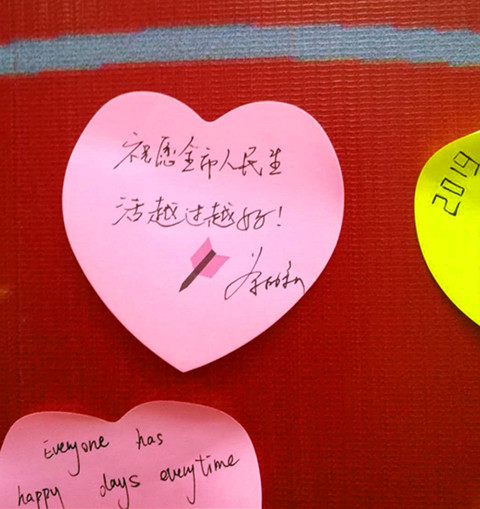 祝愿全市人民生
活越过越好!
2019
Everyone has
happy days everytime